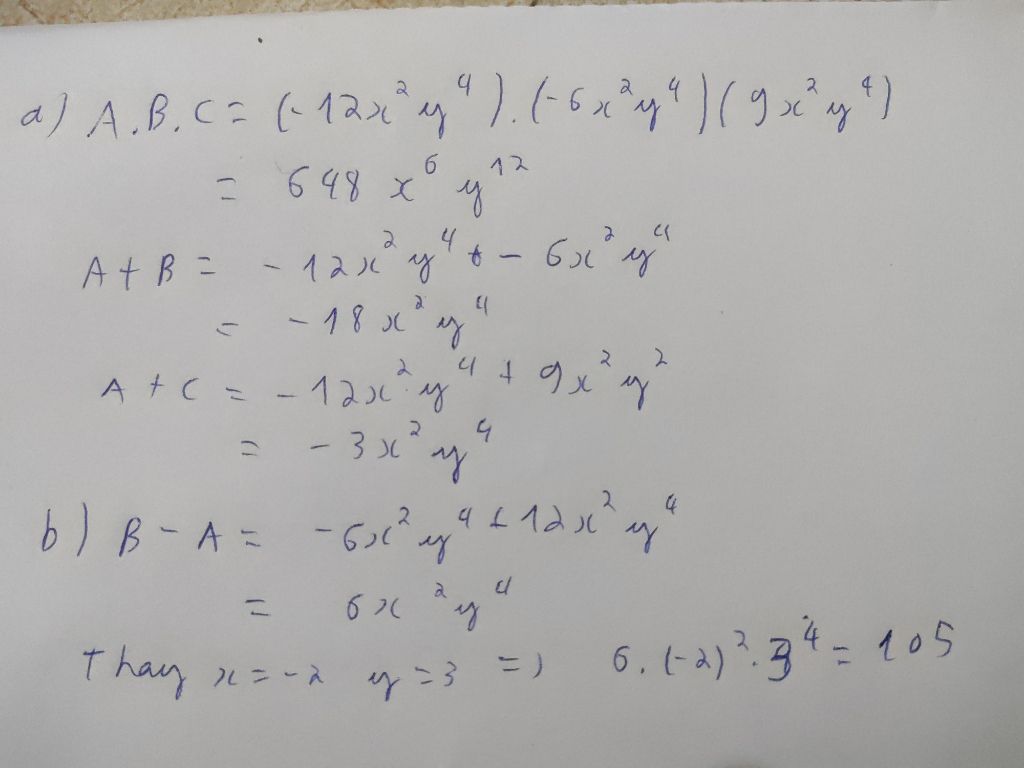 a) A.B.C = (-12x²y⁴).(-6x²y⁴)(9x²y⁴)
= 648 x⁶ y¹²
A + B = -12x²y⁴ + - 6x²y⁴
= -18x²y⁴
A + C = -12x²y⁴ + 9x²y²
= -3x²y⁴
b) B - A = -6x²y⁴ + 12x²y⁴
= 6x²y⁴
Thay x = -2 y = 3 => 6.(-2)².3⁴ = 105